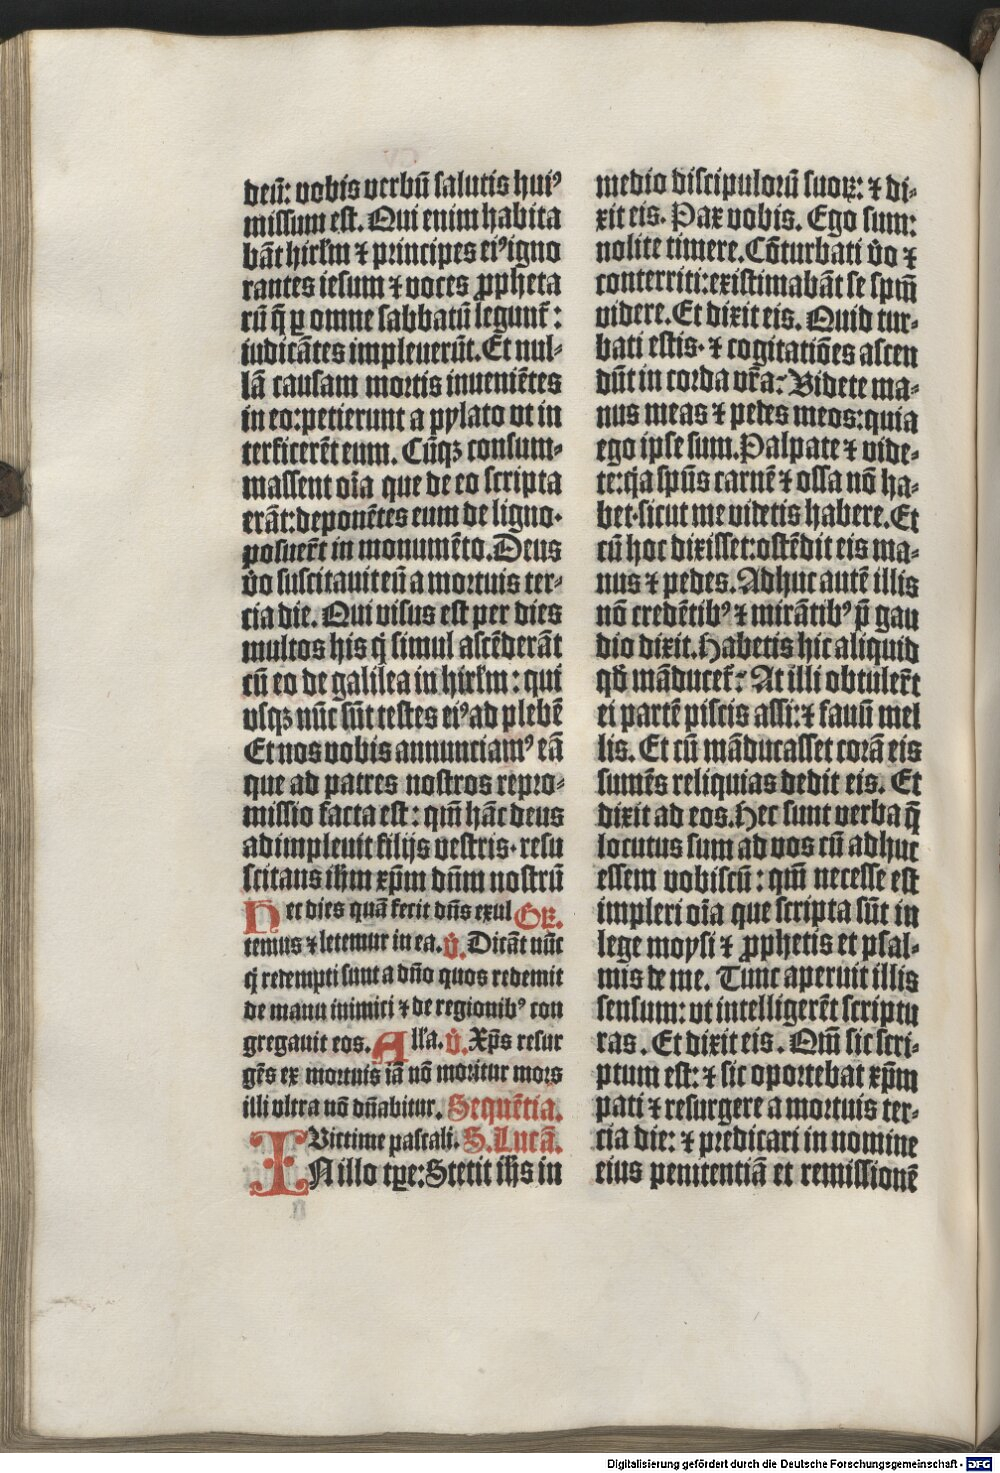 deū: vobis verbū salutis huiꝰ
missum est. Qui enim habita
bāt hirl'm ⁊ principes eiꝰ igno
rantes iesum ⁊ voces ꝓpheta
rū q̄ ꝑ omne sabbatū legunt̄:
iudicātes impleuerūt. Et nul⸗
lā causam mortis inueniētes
in eo: petierunt a pylato vt in
terficerēt eum. Cūqꝫ consum⸗
massent oīa que de eo scripta
erāt: deponētes eum de ligno.
posuer̄t in monumēto. Deus
v̊o suscitauit eū a mortuis ter⸗
cia die. Qui visus est per dies
multos his q̇ simul ascēderāt
cū eo de galilea in hirl'm: qui
vsqꝫ nūc sūt testes eiꝰ ad plebē
Et nos vobis annunciamꝰ eā
que ad patres nostros repro⸗
missio facta est: qm̄ hāc deus
adimpleuit filijs vestris. resu
scitans ihm xp̄m dn̄m nostrū
Hec dies quā fecit dn̄s exul Gꝛ.
temus ⁊ letemur in ea. v̊. Dicāt nūc
q̇ redempti sunt a dn̄o quos redemit
de manu inimici ⁊ de regionibꝰ con
gregauit eos. All'a. v̊. Xp̄s resur
gēs ex mortuis iā nō moritur mors
illi vltra nō dn̄abitur. Sequētia.
Victime pascali. S. Lucā.
IN illo tꝑe: Stetit ihs in
medio discipulorū suoꝝ: ⁊ di⸗
xit eis. Pax vobis. Ego sum:
nolite timere. Cōturbati v̊o ⁊
conterriti: existimabāt se spm̄
videre. Et dixit eis. Quid tur⸗
bati estis. ⁊ cogitatiōes ascen
dūt in corda vr̄a: Videte ma⸗
nus meas ⁊ pedes meos: quia
ego ipse sum. Palpate ⁊ vide⸗
te: q̇a spūs carnē ⁊ ossa nō ha⸗
bet. sicut me videtis habere. Et
cū hoc dixisset: ostēdit eis ma⸗
nus ⁊ pedes. Adhuc autē illis
nō credētibꝰ ⁊ mirātibꝰ p̄ gau
dio dixit. Habetis hic aliquid
qd̄ māducet̄: At illi obtuler̄t
ei partē piscis assi: ⁊ fauū mel
lis. Et cū māducasset corā eis
sumēs reliquias dedit eis. Et
dixit ad eos. Hec sunt verba q̄
locutus sum ad vos cū adhuc
essem vobiscū: qm̄ necesse est
impleri oīa que scripta sūt in
lege moysi ⁊ ꝓphetis et psal⸗
mis de me. Tunc aperuit illis
sensum: vt intelligerēt scriptu
ras. Et dixit eis. Qm̄ sic scri⸗
ptum est: ⁊ sic oportebat xp̄m
pati ⁊ resurgere a mortuis ter⸗
cia die: ⁊ predicari in nomine
eius penitentiā et remissionē
Digitalisierung gefördert durch die Deutsche Forschungsgemeinschaft - DFG